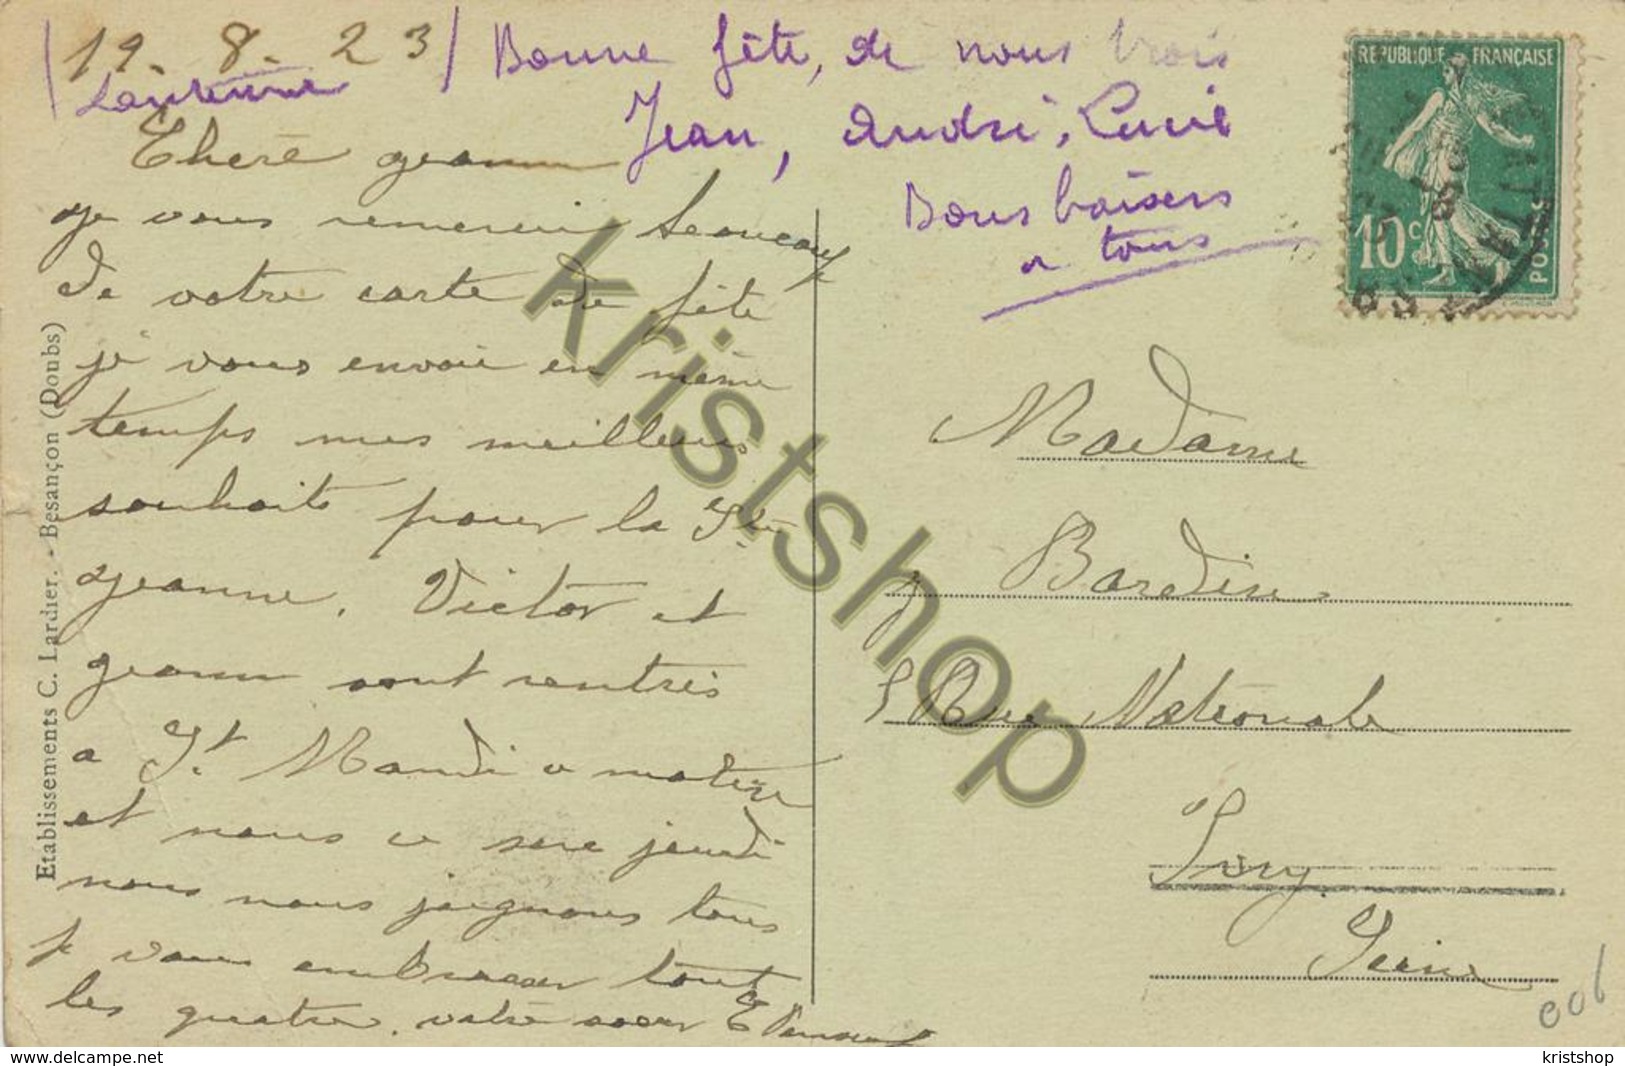 19. 8. 23
Bonne fête, de nous trois
Jean, André, Lucie
Bons baisers
a tous
Chère
je vous remercie beaucoup
de votre carte de fête
je vous envoie en même
temps mes meilleurs
souhaits pour la Ste
Jeanne, Victor et
jeann sont rentrés
a St Mandé
et nous jeudi
nous nous joignons tous
p vous embrasser tout
les quatre. votre soeur
REPUBLIQUE FRANÇAISE
10c
POSTES
Madame
Bardin
5 Rue Nationale
Ivry
Seine
006
Etablissements C. Lardier. - Besançon (Doubs)
kristshop
www.delcampe.net
kristshop